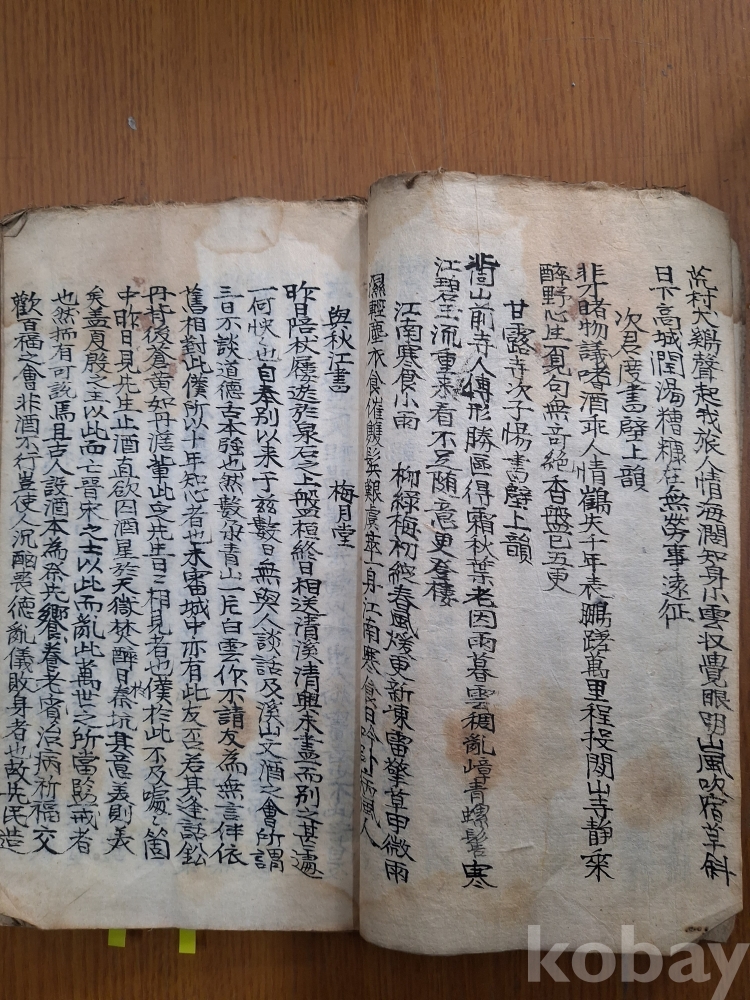 荒村犬鷄聲起我旅人情海濶知身小雲收覺眼明山風吹宿草斜
日下高城潤渴糟糠在無勞事遠征
次君度書壁上韻
非不睹物議嗜酒乖人情鶴失千年表鵬蹯萬里程投閑山寺靜采
醉野心生覓句無奇絶香盤已五更
甘露寺次子惕書壁上韻
背山前寺人傳形勝區得霜秋葉老因雨暮雲稠亂嶂青螺髻寒
江碧玉流重來看不足随意更登樓
江南寒食小雨 柳綠梅初綻春風煖更新凍雷擎草甲微雨
濕輕塵衣食催雙鬂艱虞萃一身江南寒食日
與秋江書 梅月堂
昨日陪杖屨遊於泉石之上盤桓終日相送清溪清興未盡而別之甚遽
一何怏也自奉別以來于兹數日無與人談話及溪山文酒之會所謂
三日不談道德舌本强也然數朶青山一片白雲作不請友為無言伴依
舊相對此僕所以十年知心者也未審城中亦有此友否若其逢話鈆
丹於後蒼黃如丹漄輩此皆先生曰相見者也僕於此不及噱噱箇
中昨日見先生止酒直欲囚酒星於天獄焚醉日秦坑其意美則美
矣盖夏殷之主以此而亡晉宋之士以此而亂此萬世之所當懲戒者
也然揣有可說焉且古人設酒本為祭先饗眷老賓治病祈福交
歡百福之會非酒不行豈使人沉酗喪德亂儀敗身者也故先民造
kobay